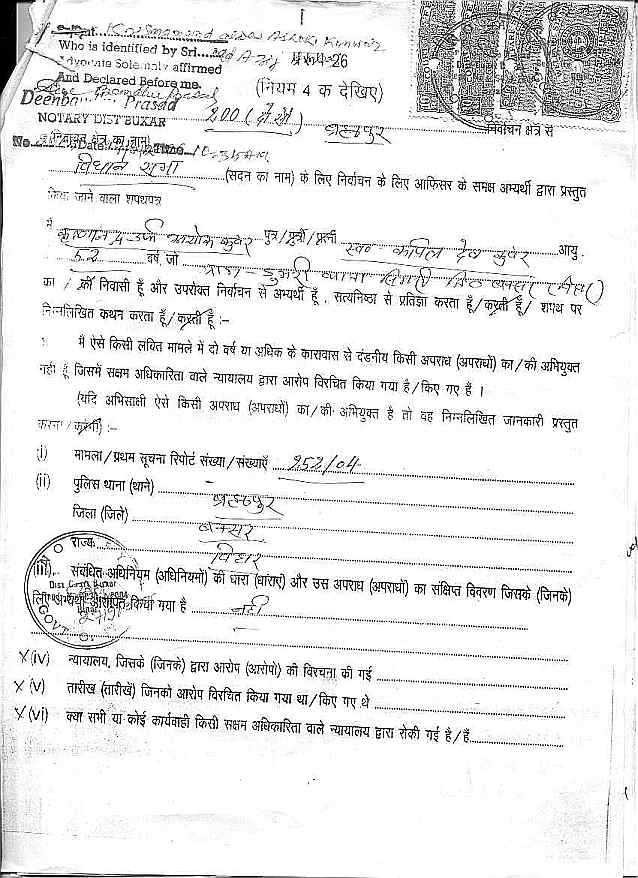 Who is identified by Sri....
Advocate Solemnly affirmed
And Declared Before me. 26
(नियम 4 क देखिए)
Deenba Prasad
NOTARY DIST BUXAR
200 (दो सौ) ब्रह्मपुर निर्वाचन क्षेत्र से
(निर्वाचन क्षेत्र का नाम)
विधान सभा (सदन का नाम) के लिए निर्वाचन के लिए आफिसर के समक्ष अभ्यर्थी द्वारा प्रस्तुत
किया जाने वाला शपथपत्र
मैं उर्फ अशोक कुंवर पुत्र/पुत्री/पत्नी स्व० कपिल देव कुंवर आयु
52 वर्ष, जो डुमरी थाना सिमरी जिला बक्सर (बिहार)
का / की निवासी हूँ और उपरोक्त निर्वाचन से अभ्यर्थी हूँ, सत्यनिष्ठा से प्रतिज्ञा करता हूँ/करती हूँ/ शपथ पर
निम्नलिखित कथन करता हूँ/करती हूँ :-
मैं ऐसे किसी लंबित मामले में दो वर्ष या अधिक के कारावास से दंडनीय किसी अपराध (अपराधों) का/की अभियुक्त
नहीं हूँ जिसमें सक्षम अधिकारिता वाले न्यायालय द्वारा आरोप विरचित किया गया है/किए गए हैं ।
(यदि अभिसाक्षी ऐसे किसी अपराध (अपराधों) का/की अभियुक्त है तो वह निम्नलिखित जानकारी प्रस्तुत
करता/करेगी) :-
(i) मामला/प्रथम सूचना रिपोर्ट संख्या/संख्याएँ 252/04
(ii) पुलिस थाना (थाने) ब्रह्मपुर
जिला (जिले) बक्सर
राज्य बिहार
(iii) संबंधित अधिनियम (अधिनियमों) की धारा (धाराएं) और उस अपराध (अपराधों) का संक्षिप्त विवरण जिसके (जिनके)
लिए अभ्यर्थी आरोपित किया गया है नहीं
X (iv) न्यायालय, जिसके (जिनके) द्वारा आरोप (आरोपों) की विरचना की गई
X (v) तारीख (तारीखें) जिनको आरोप विरचित किया गया था/किए गए थे
X (vi) क्या सभी या कोई कार्यवाही किसी सक्षम अधिकारिता वाले न्यायालय द्वारा रोकी गई है/हैं